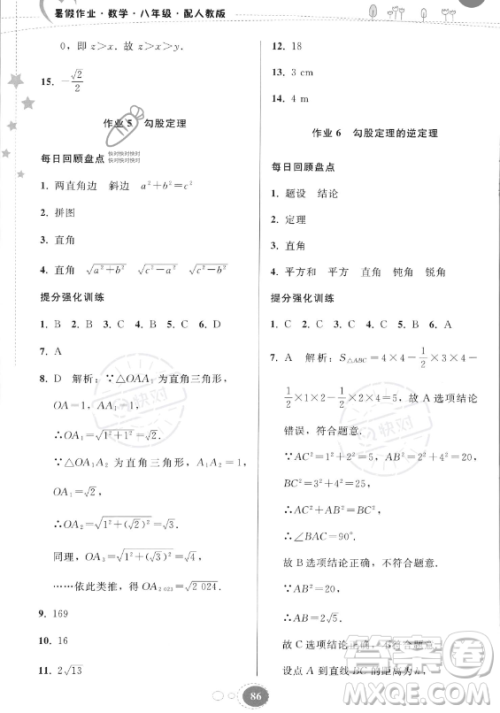 暑假作业·数学·八年级·配人教版
0，即 z＞x．故 z＞y＞x．
15. −√2/2
作业 5 勾股定理
每日回顾盘点
1. 两直角边 斜边 a²＋b²＝c²
2. 拼图
3. 直角
4. 直角 √(a²＋b²) √(c²－a²) √(c²－b²)
提分强化训练
1. B 2. B 3. C 4. C 5. B 6. D
7. A
8. D 解析：∵△OAA₁ 为直角三角形，
OA＝1，AA₁＝1，
∴OA₁＝√(1²＋1²)＝√2.
∵△OA₁A₂ 为直角三角形，A₁A₂＝1，
OA₁＝√2，
∴OA₂＝√(1²＋(√2)²)＝√3.
同理，OA₃＝√(1²＋(√3)²)＝√4，
……依此类推，得 OA₂₀₂₃＝√2 024.
9. 169
10. 16
11. 2√13
12. 18
13. 3 cm
14. 4 cm
作业 6 勾股定理的逆定理
每日回顾盘点
1. 题设 结论
2. 定理
3. 直角
4. 平方和 平方 直角 钝角 锐角
提分强化训练
1. C 2. C 3. C 4. A 5. C 6. B
7. A 解析：S△ABC＝4×4－1/2×3×4－
1/2×1×2－1/2×2×4＝5，故 A 选项结论
错误，符合题意.
∵AC²＝1²＋2²＝5，AB²＝2²＋4²＝20，
BC²＝3²＋4²＝25，
∴AC²＋AB²＝BC²，
∴∠BAC＝90°.
故 B 选项结论正确，不符合题意.
∵AB²＝20，
∴AB＝2√5.
故 C 选项结论正确，不符合题意.
设点 A 到直线 BC 的距离为 h，
86